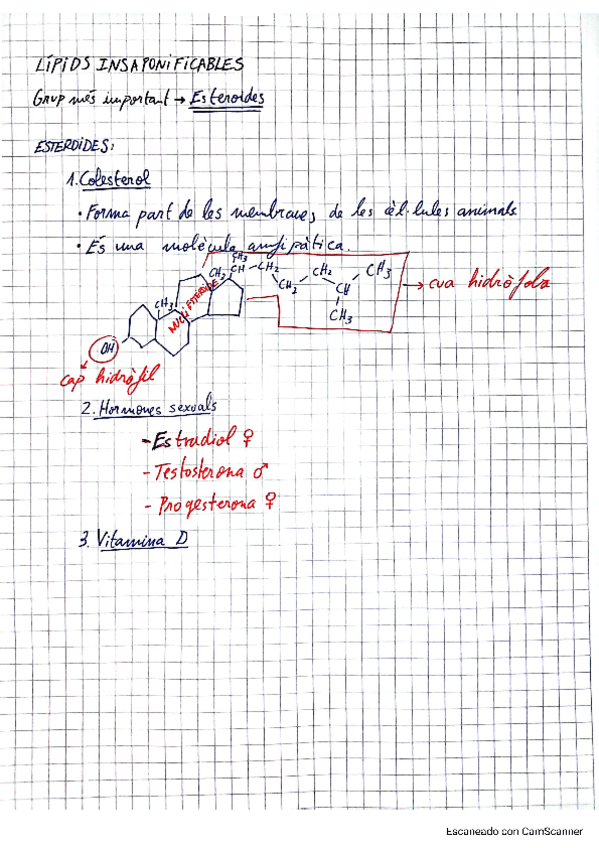 LÍPIDS INSAPONIFICABLES
Grup més important → Esteroides
ESTEROIDES:
1. Colesterol
• Forma part de les membranes de les cèl·lules animals.
• És una molècula amfipàtica.
CH3
CH3 CH - CH2 CH2 CH3
CH2 CH
CH3
CH3
NUCLI ESTEROIDE
→ cua hidròfoba
OH
cap hidròfil
2. Hormones sexuals
- Estradiol ♀
- Testosterona ♂
- Progesterona ♀
3. Vitamina D
Escaneado con CamScanner